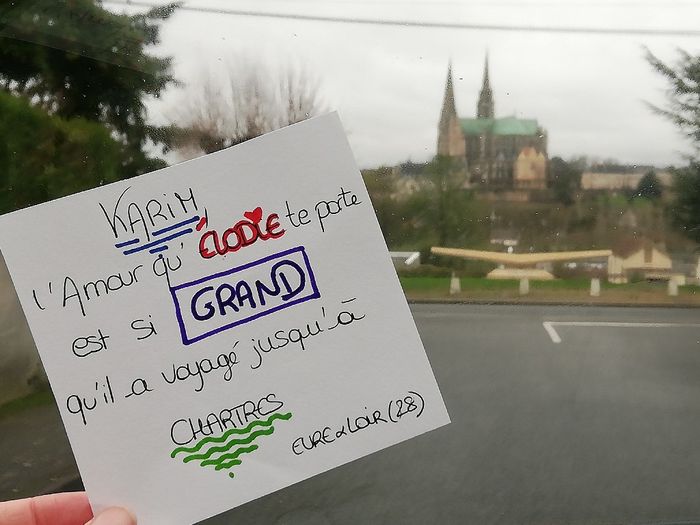 KARIM,
l'Amour qu' ÉLODIE te porte
est si GRAND
qu'il a voyagé jusqu'à
CHARTRES
EURE & LOIR (28)